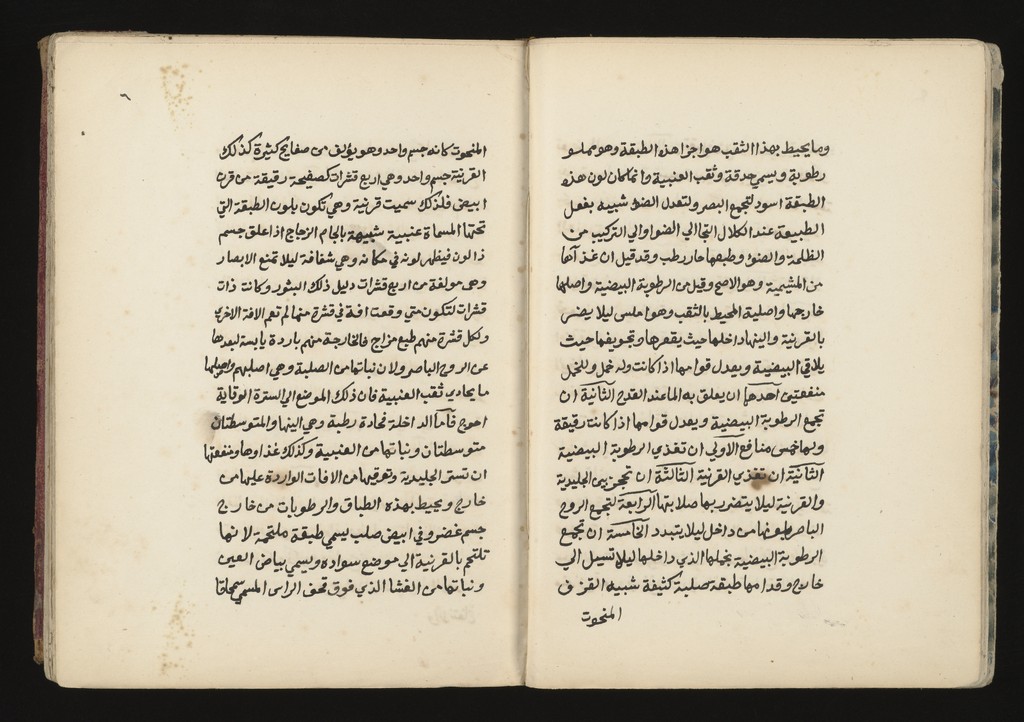 وما يحيط بهذا الثقب هو اجزا هذه الطبقة وهو مملو
رطوبة ويسمي حدقة وثقب العنبية وانما كان لون هذه
الطبقة اسود لتجمع البصر ولتعدل الضو شبيه بفعل
الطبيعة عند الكلال التجا الي الضوا والي التركيب من
الظلمة والضو وطبعها حار رطب وقد قيل ان غذاها
من المشيمية وهو الاصح وقيل من الرطوبة البيضية واصلبها
خارجها واصلبة المحيط بالثقب وهو املس ليلا يضر
بالقرنية والينها داخلها حيث يقعرها وتجويفها حيث
يلاقي البيضية ويعدل قوامها اذا كانت وله خمل وللخمل
منفعتين احدها ان يعلق به الما عند القدح الثانية ان
تجمع الرطوبة البيضية ويعدل قوامها اذا كانت رقيقة
ولها خمس منافع الاولي ان تغذي الرطوبة البيضية
الثانية ان تغذي القرنية الثالثة ان تحجز بين الجليدية
والقرنية ليلا يتضرر بها صلابتها الرابعة لتجمع الروح
الباصر من داخل ليلا يتبدد الخامسة ان تجمع
الرطوبة البيضية بخملها الذي داخلها ليلا تسيل الي
خارج وقدامها طبقة صلبة كثيفة شبيه القرن
المنحوت
المنحوت كانه جسم واحد وهو يولف من صفايح كثيرة كذلك
القرنية جسم واحد وهي اربع قشرات كصفيحة رقيقة من قرن
ابيض فلذلك سميت قرنية وهي تكون بلون الطبقة التي
تحتها المسماة عنبية شبيهة بالجام الزجاج اذا علق جسم
ذا لون فيظهر لونه في مكانه وهي شفافة ليلا تمنع الابصار
وهي مولفة من اربع قشرات دليل ذلك البثور وكانت ذات
قشرات لتكون متي وقعت افة في قشرة منها لم تعم الافة الاخري
ولكل قشرة منهم طبع مزاج فالخارجة منهم باردة يابسة لبعدها
عن الروح الباصر ولان نباتها من الصلبة وهي اصلبهم واصلبها
ما يحادي ثقب العنبية فان ذلك الموضع الي السترة الوقاية
احوج فاما الداخلة فحادة رطبة وهي الينها والمتوسطتان
متوسطتان ونباتها من العنبية وكذلك غذاوها ومنفعتها
ان تستر الجليدية وتعرقيها من الافات الواردة عليها من
خارج ويحيط بهذه الطباق والرطوبات من خارج
جسم غضروفي ابيض صلب يسمي طبقة ملتحمة لانها
تلتحم بالقرنية الي موضع سواده ويسمي بياض العين
ونباتها من الغشا الذي فوق قحف الراس المسمي سمحاقا